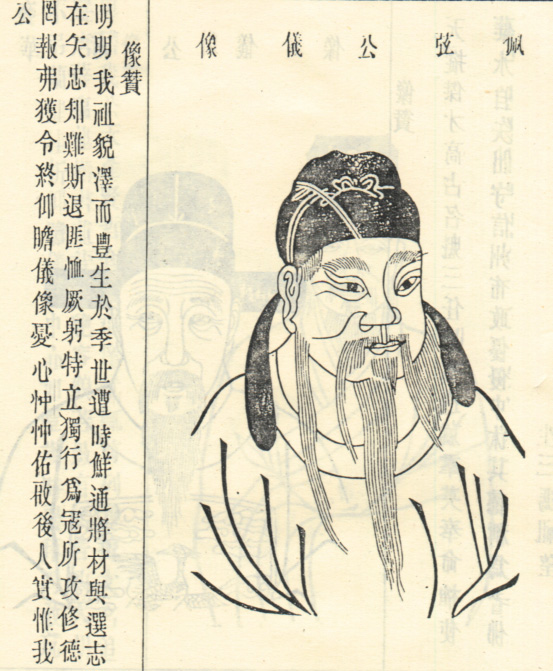 佩弦公儀像
像贊
明明我祖貌澤而豐生於季世遭時鮮通將材與選志
在矢忠知難斯退匪恤厥躬特立獨行爲冦所攻修德
罔報弗獲令終仰瞻儀像憂心忡忡佑啟後人實惟我
公